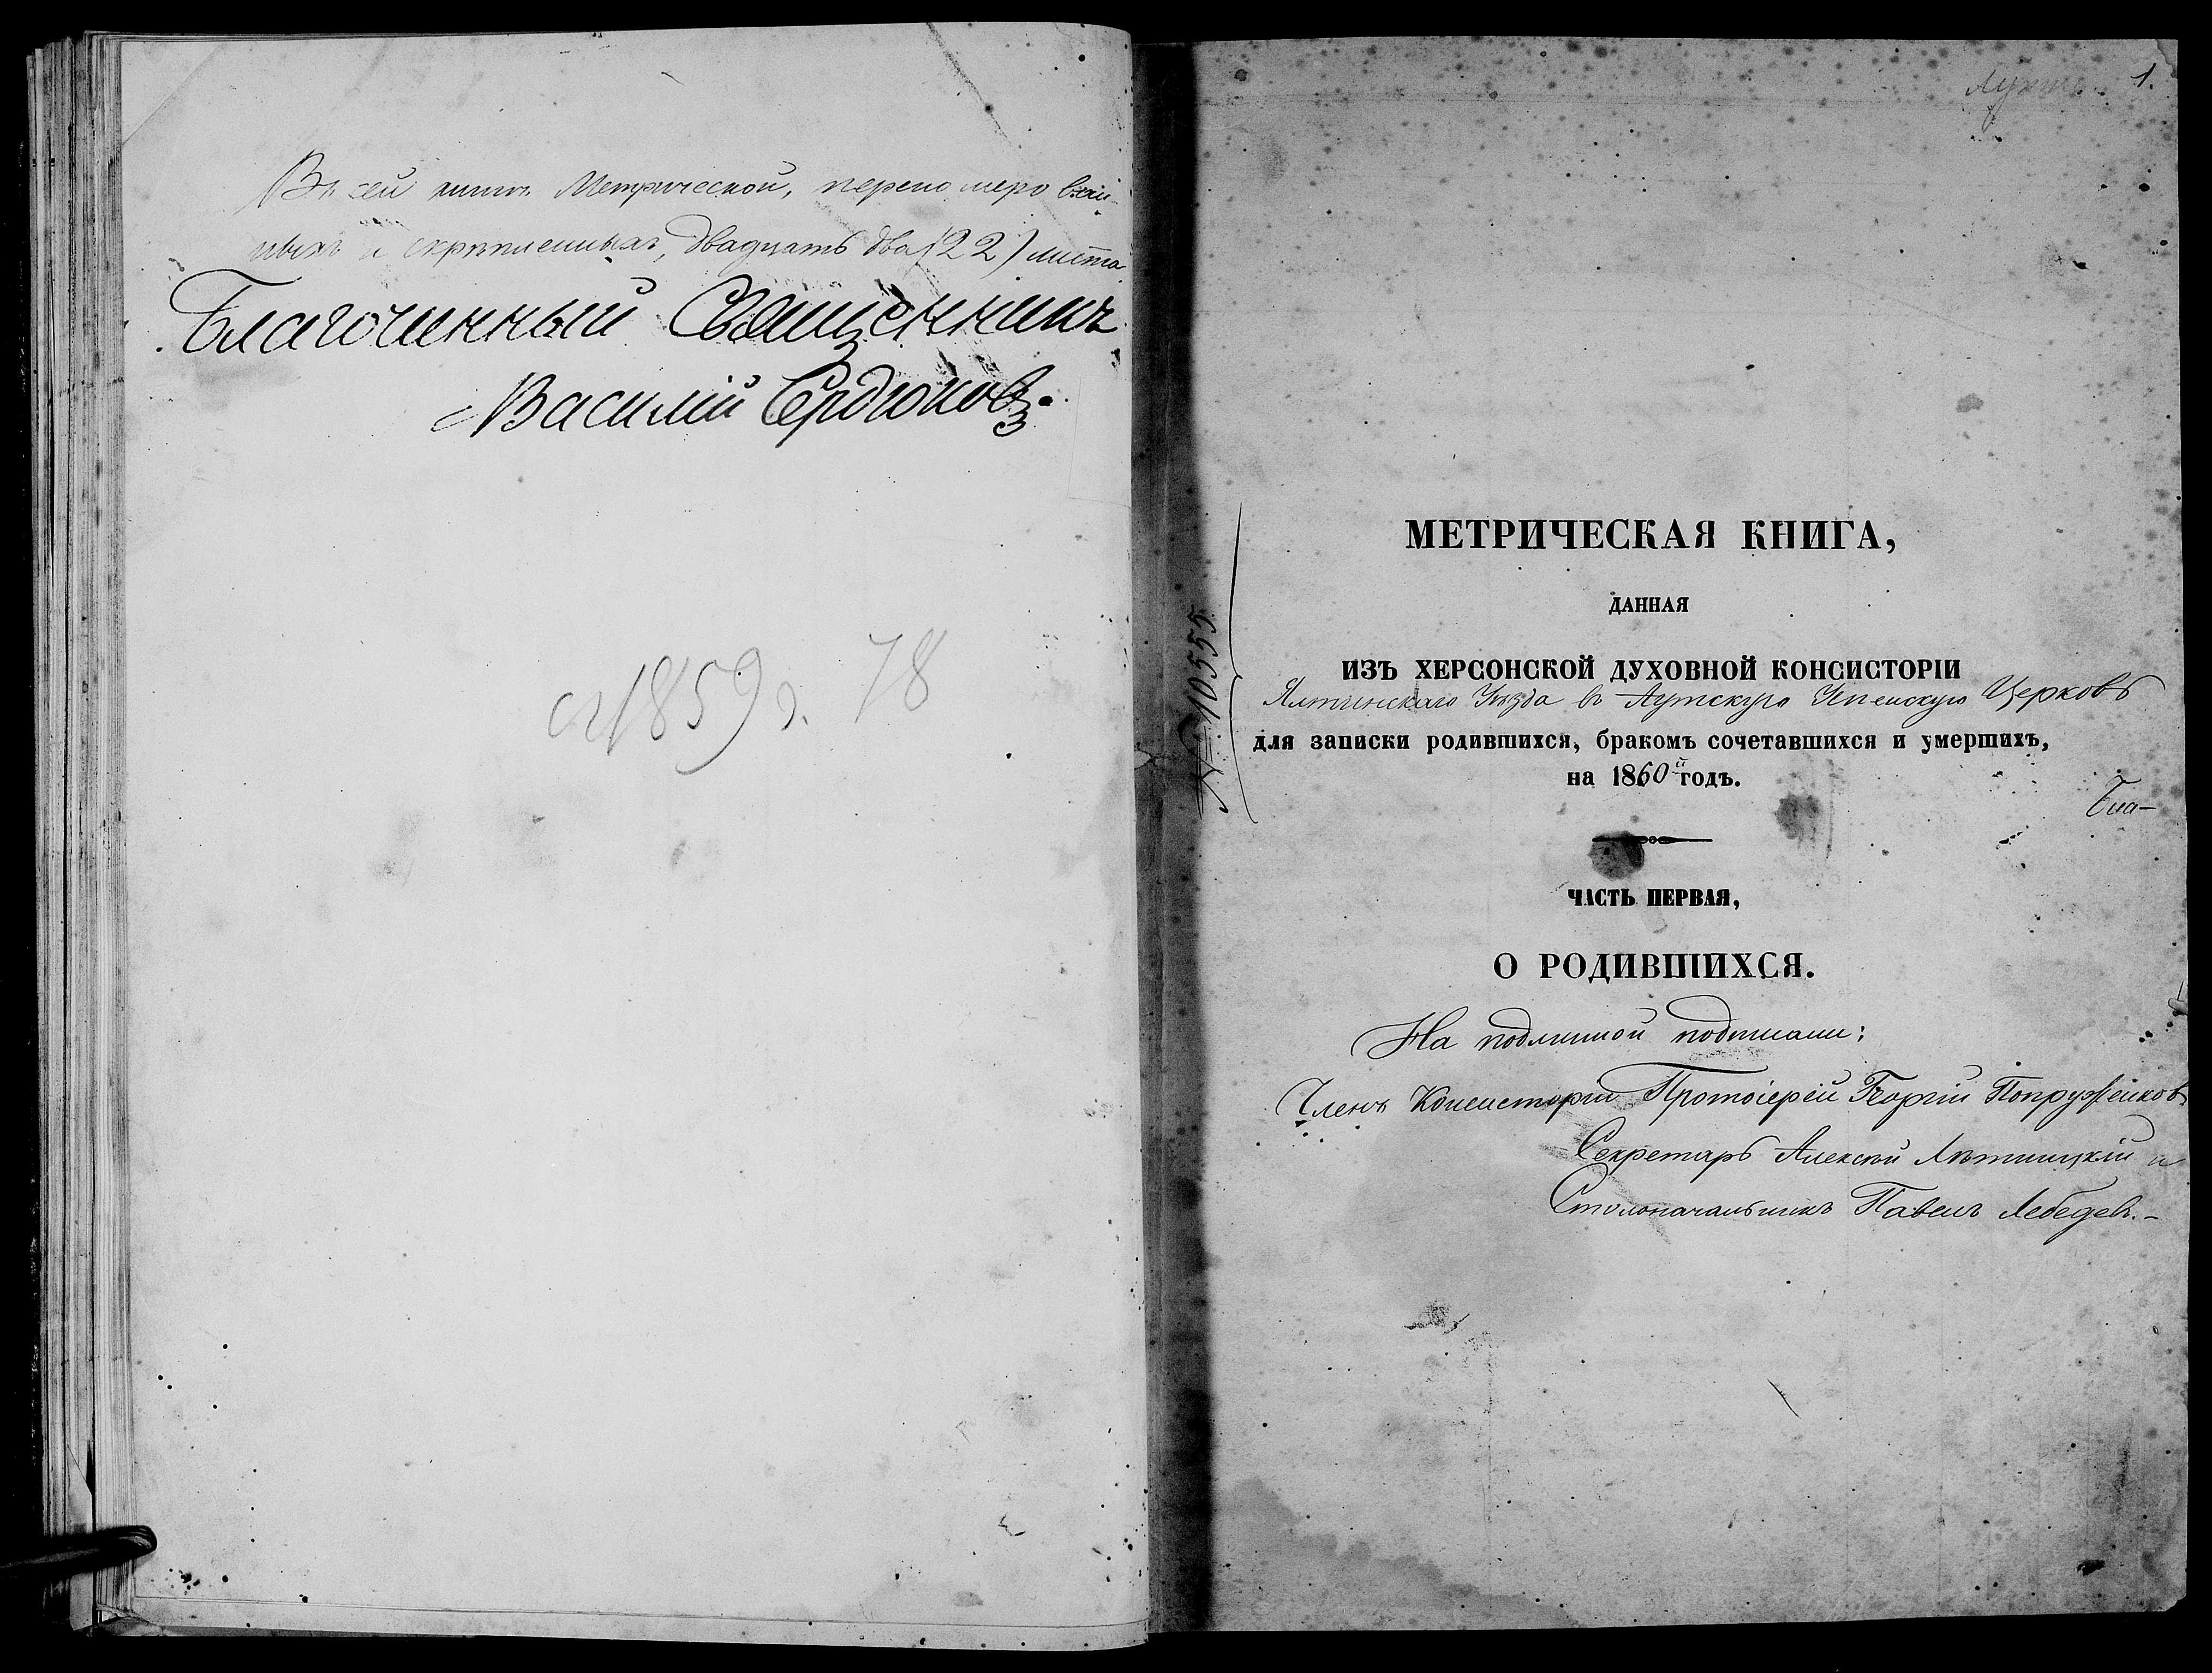 Въ сей книгѣ Метрической, переномерован-
ныхъ и скрѣпленныхъ, двадцать два (22) листа
Благочинный Священникъ
Василій Сердюковъ.
1859 г. 78
1.
МЕТРИЧЕСКАЯ КНИГА,
ДАННАЯ
ИЗЪ ХЕРСОНСКОЙ ДУХОВНОЙ КОНСИСТОРІИ
Ялтинскаго Уѣзда въ Аутскую Успенскую Церковь
для записки родившихся, бракомъ сочетавшихся и умершихъ,
на 1860й годъ.
№ 10555.
ЧАСТЬ ПЕРВАЯ,
О РОДИВШИХСЯ.
На подлинной подписали:
Членъ Консисторіи Протоіерей Георгій Попруженковъ
Секретарь Алексѣй Лѣтницкій и
Столоначальникъ Павелъ Лебедевъ.-